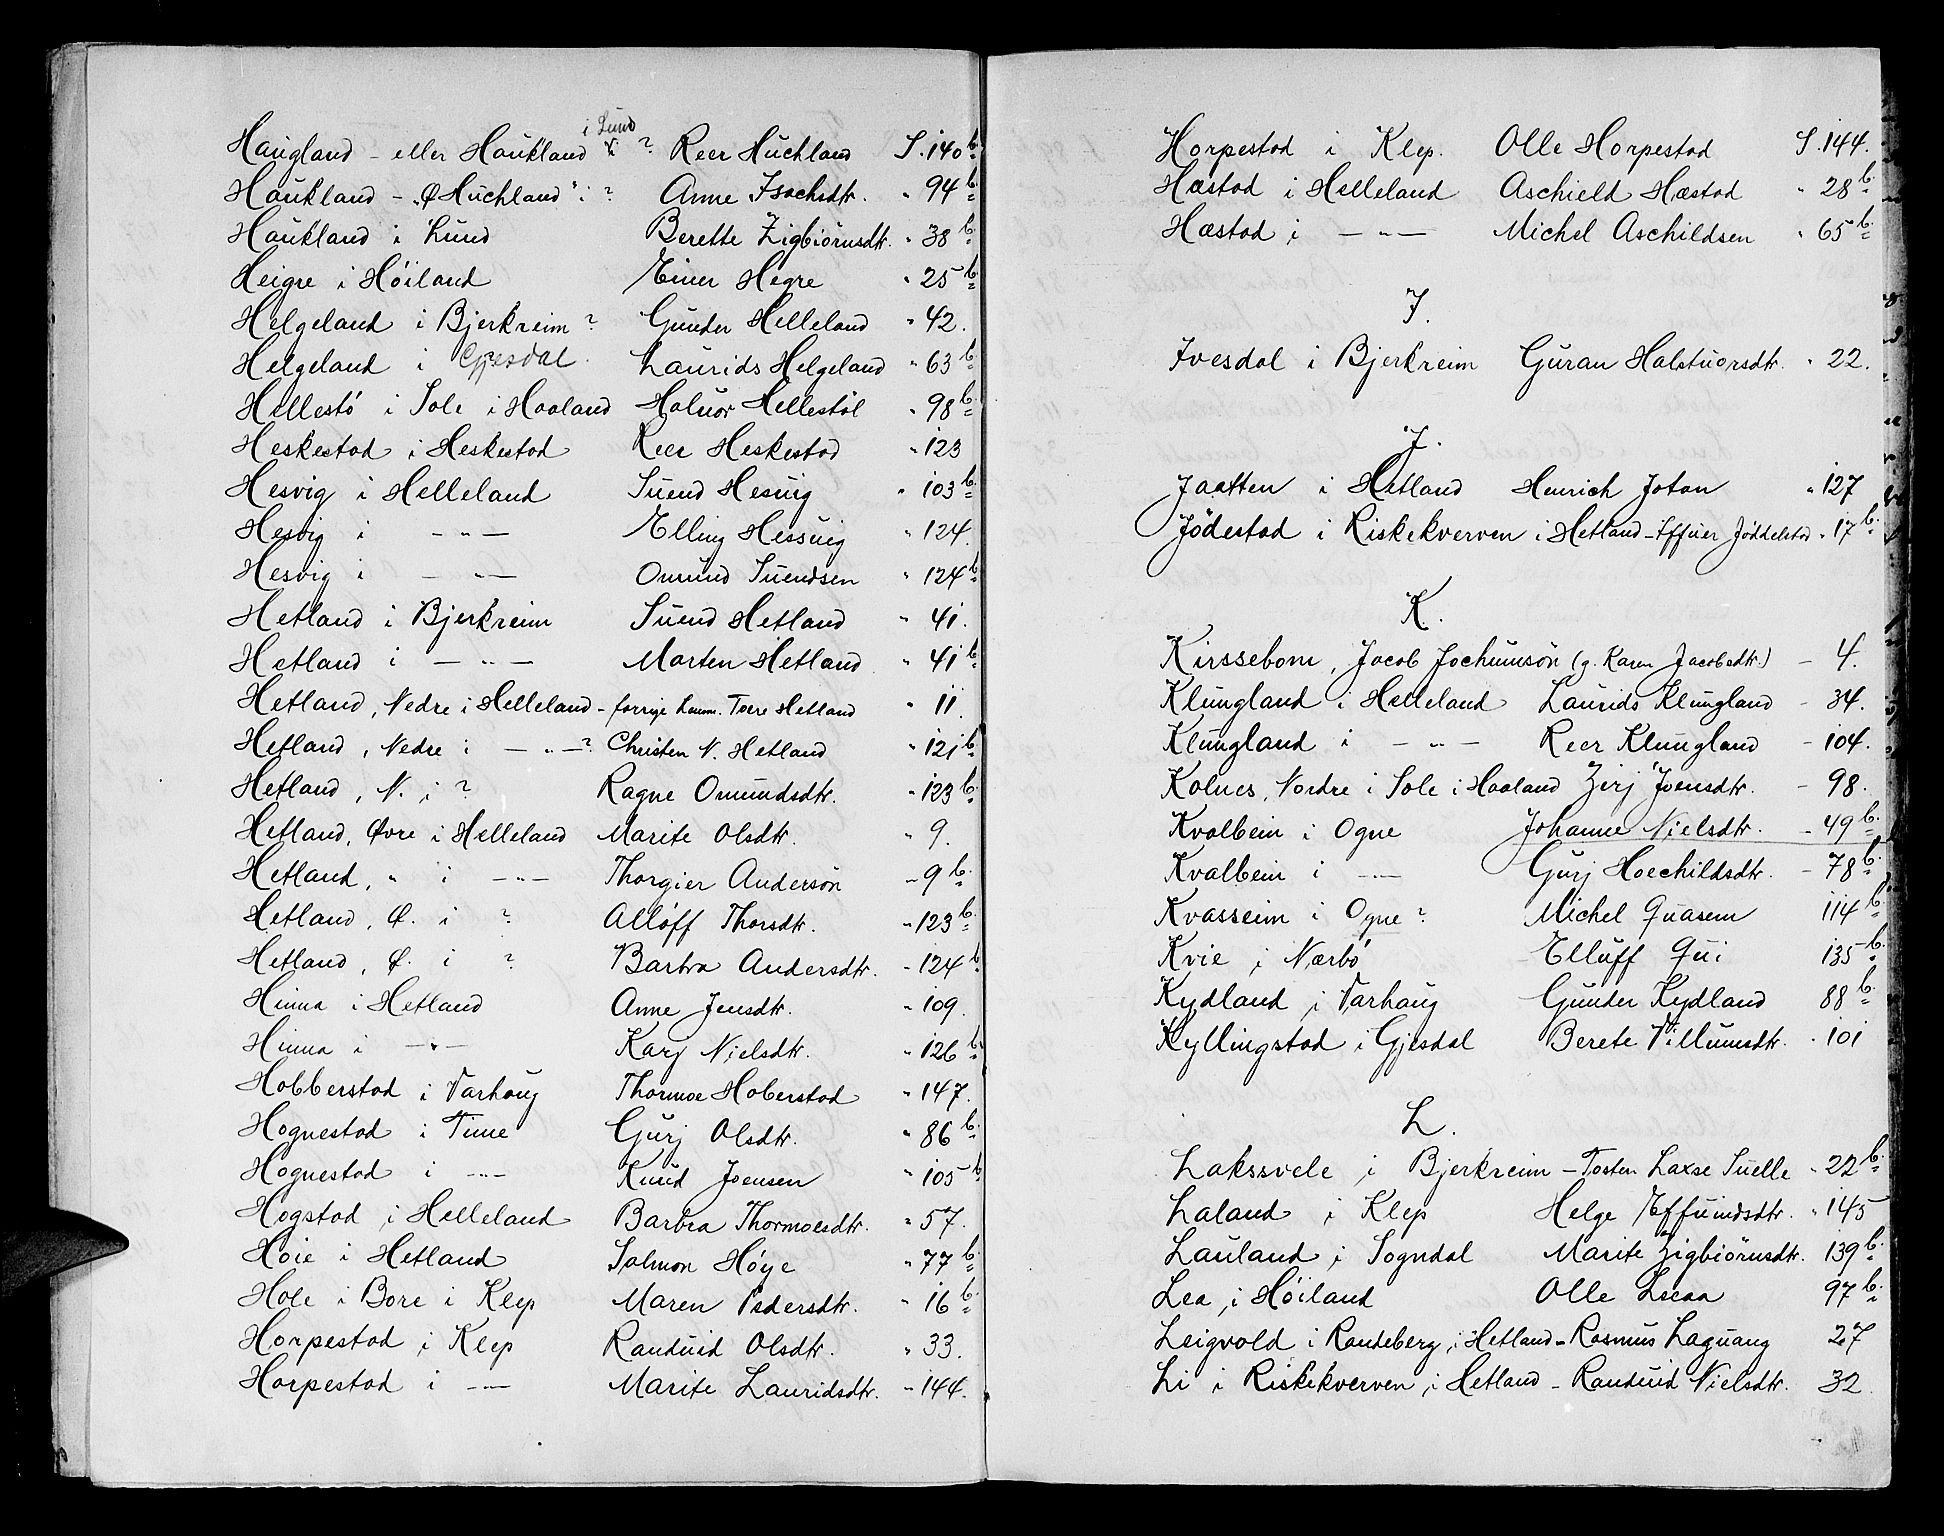 i Lund
Haugland - eller Haukland ? Reer Huchland S. 140 b.
Haukland - "Ø Huchland" i ? Anne Isachsdtr. " 94 b.
Haukland i Lund Berette Zigbiörnsdtr. " 38 b.
Heigre i Höiland Einer Hegre " 25 b.
Helgeland i Bjerkreim ? Gunder Helleland " 42.
Helgeland i Gjesdal. Laurids Helgeland " 63 b.
Hellestö i Sole i Haaland Haluor Hellestöl " 98 b.
Heskestad i Heskestad Reer Heskestad " 123
Hesvig i Helleland Suend Hesuig " 103 b.
Hesvig i — " — Elling Hessuig " 124.
Hesvig i — " — Omund Suendsen " 124 b.
Hetland i Bjerkreim Suend Hetland " 41.
Hetland i — " — Morten Hetland " 41 b.
Hetland, Nedre i Helleland - forrige Lensm. Toere Hetland " 11.
Hetland, Nedre i — " — ? Christen N. Hetland " 121 b.
Hetland, N. i ? Ragne Omundsdtr. " 123 b.
Hetland, Øvre i Helleland Marite Olsdtr. " 9.
Hetland, " i — " — Thorgier Andersön " 9 b.
Hetland, Ø. i ? Allöff Thorsdtr. " 123 b.
Hetland, Ø. i ? Barbra Andersdtr. " 124 b.
Hinna i Hetland Anne Jensdtr. " 109.
Hinna i — " — Karj Nielsdtr. " 126 b.
Hobberstad i Varhaug Thormoe Hoberstad " 147.
Hognestad i Time Gurj Olsdtr. " 86 b.
Hognestad i — " — Knud Joensen " 105 b.
Hogstad i Helleland Barbra Thormoesdtr. " 57.
Høie i Hetland Salmon Høye " 77 b.
Hole i Bore i Klep Maren Pedersdtr. " 16 b.
Horpestad i Klep Randuid Olsdtr. " 33.
Horpestad i — " — Marite Lauridsdtr. " 144.
Horpestad i Klep. Olle Horpestad S. 144.
Hæstad i Helleland Aschield Hæstad " 28 b.
Hæstad i — " — Michel Aschildsen " 65 b.
I.
Ivesdal i Bjerkreim Guran Halstuorsdtr. " 22.
J.
Jaatten i Hetland Henrich Jotan " 127
Jödestad i Riskekverven i Hetland - Effuer Jöddelstad " 17 b.
K.
Kirssebom, Jacob Jochumsön (g. Karen Jacobsdtr.) - 4.
Klungland i Helleland Laurids Klungland - 34.
Klungland i — " — Reer Klungland - 104.
Kolnes, Nordre i Sole i Haaland Zirj Joensdtr. - 98.
Kvalbein i Ogne Johanne Nielsdtr. - 49 b.
Kvalbein i — " — Gurj Hoechildsdtr. - 78 b.
Kvasseim i Ogne ? Michel Quasem 114 b.
Kvie i Nærbö Elluff Qui 135 b.
Kydland i Varhaug Gunder Kydland 88 b.
Kyllingstad i Gjesdal Berete Villumsdtr. " 101
L.
Lakssvele i Bjerkreim - Tosten Laxse Suelle " 22 b.
Laland i Klep Helge Effuindsdtr. " 145
Lauland i Sogndal Marite Zigbiörnsdtr. 139 b.
Lea i Höiland Olle Leeaa 97 b.
Leigvold i Randeberg i Hetland - Rasmus Laguang 27
Li i Riskekverven i Hetland - Randuid Nielsdtr. 32.